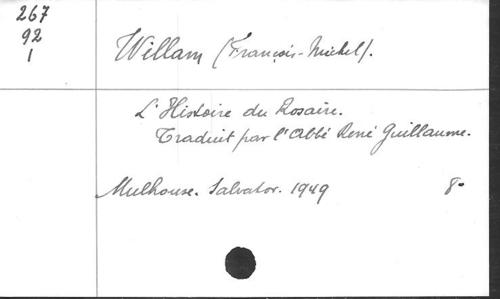 267
92
1
Willam (François-Michel).
L'Histoire du Rosaire.
Traduit par l'Abbé René Guillaume.
Mulhouse. Salvator. 1949 8°